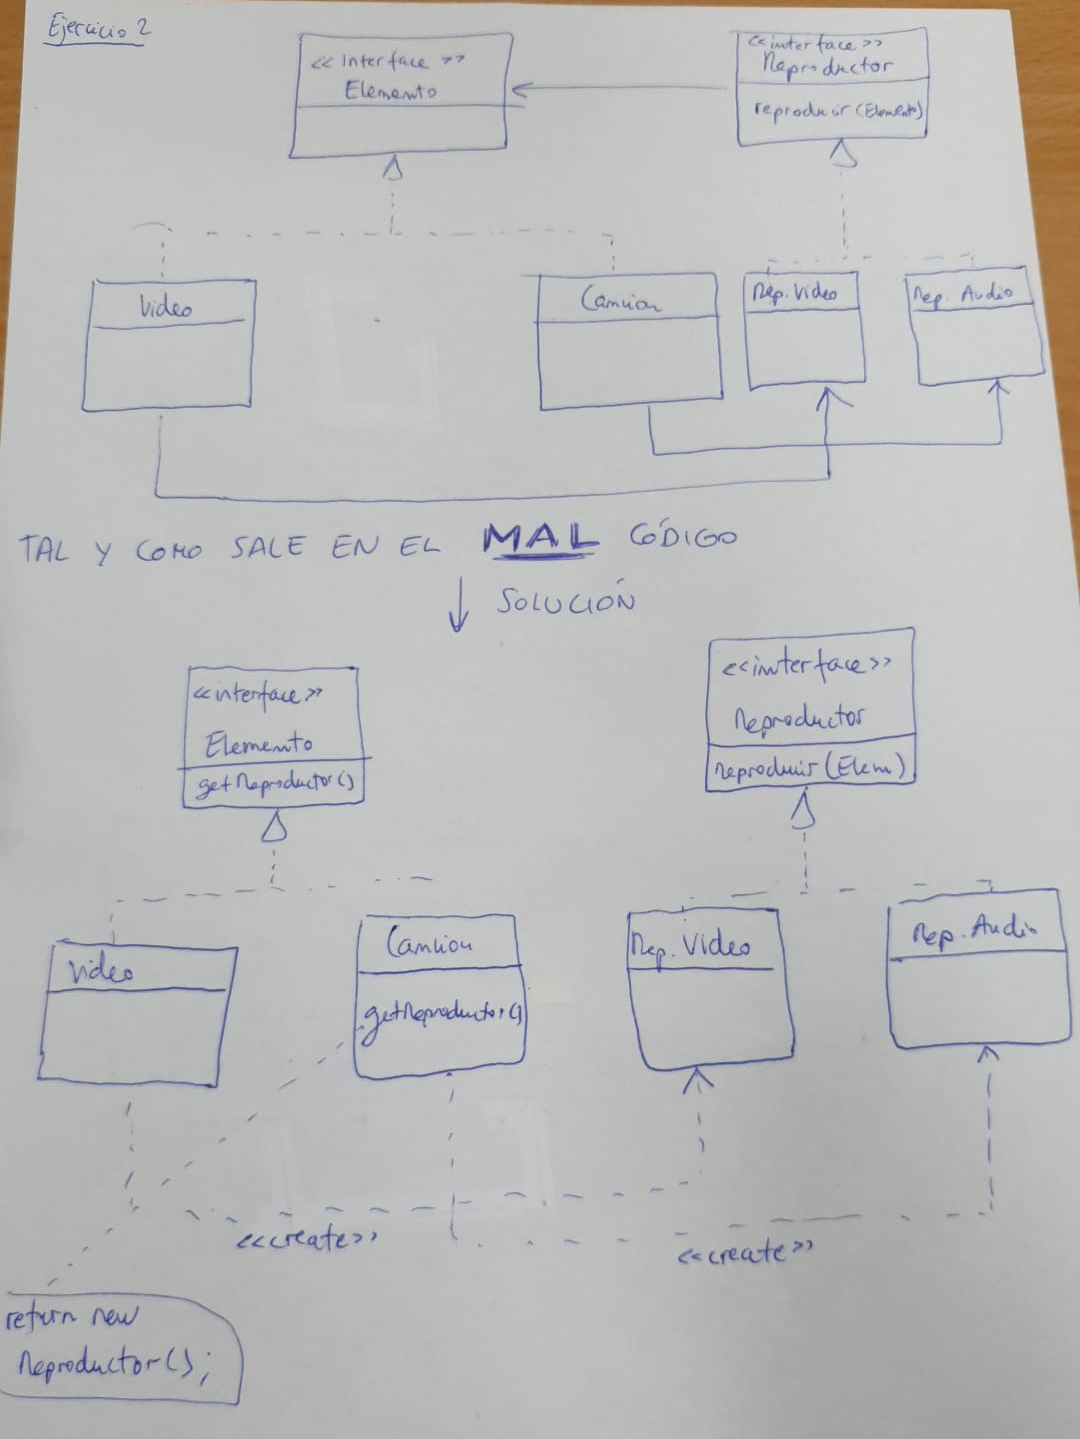 Ejercicio 2
<<Interface>>
Elemento
<<interface>>
Reproductor
reproducir (Elemento)
Video
Cancion
Rep. Video
Rep. Audio
TAL Y COMO SALE EN EL MAL CÓDIGO
SOLUCIÓN
<<interface>>
Elemento
getReproductor()
<<interface>>
Reproductor
reproducir (Elem)
Video
Cancion
getReproductor()
Rep. Video
Rep. Audio
<<create>>
<<create>>
return new
Reproductor();